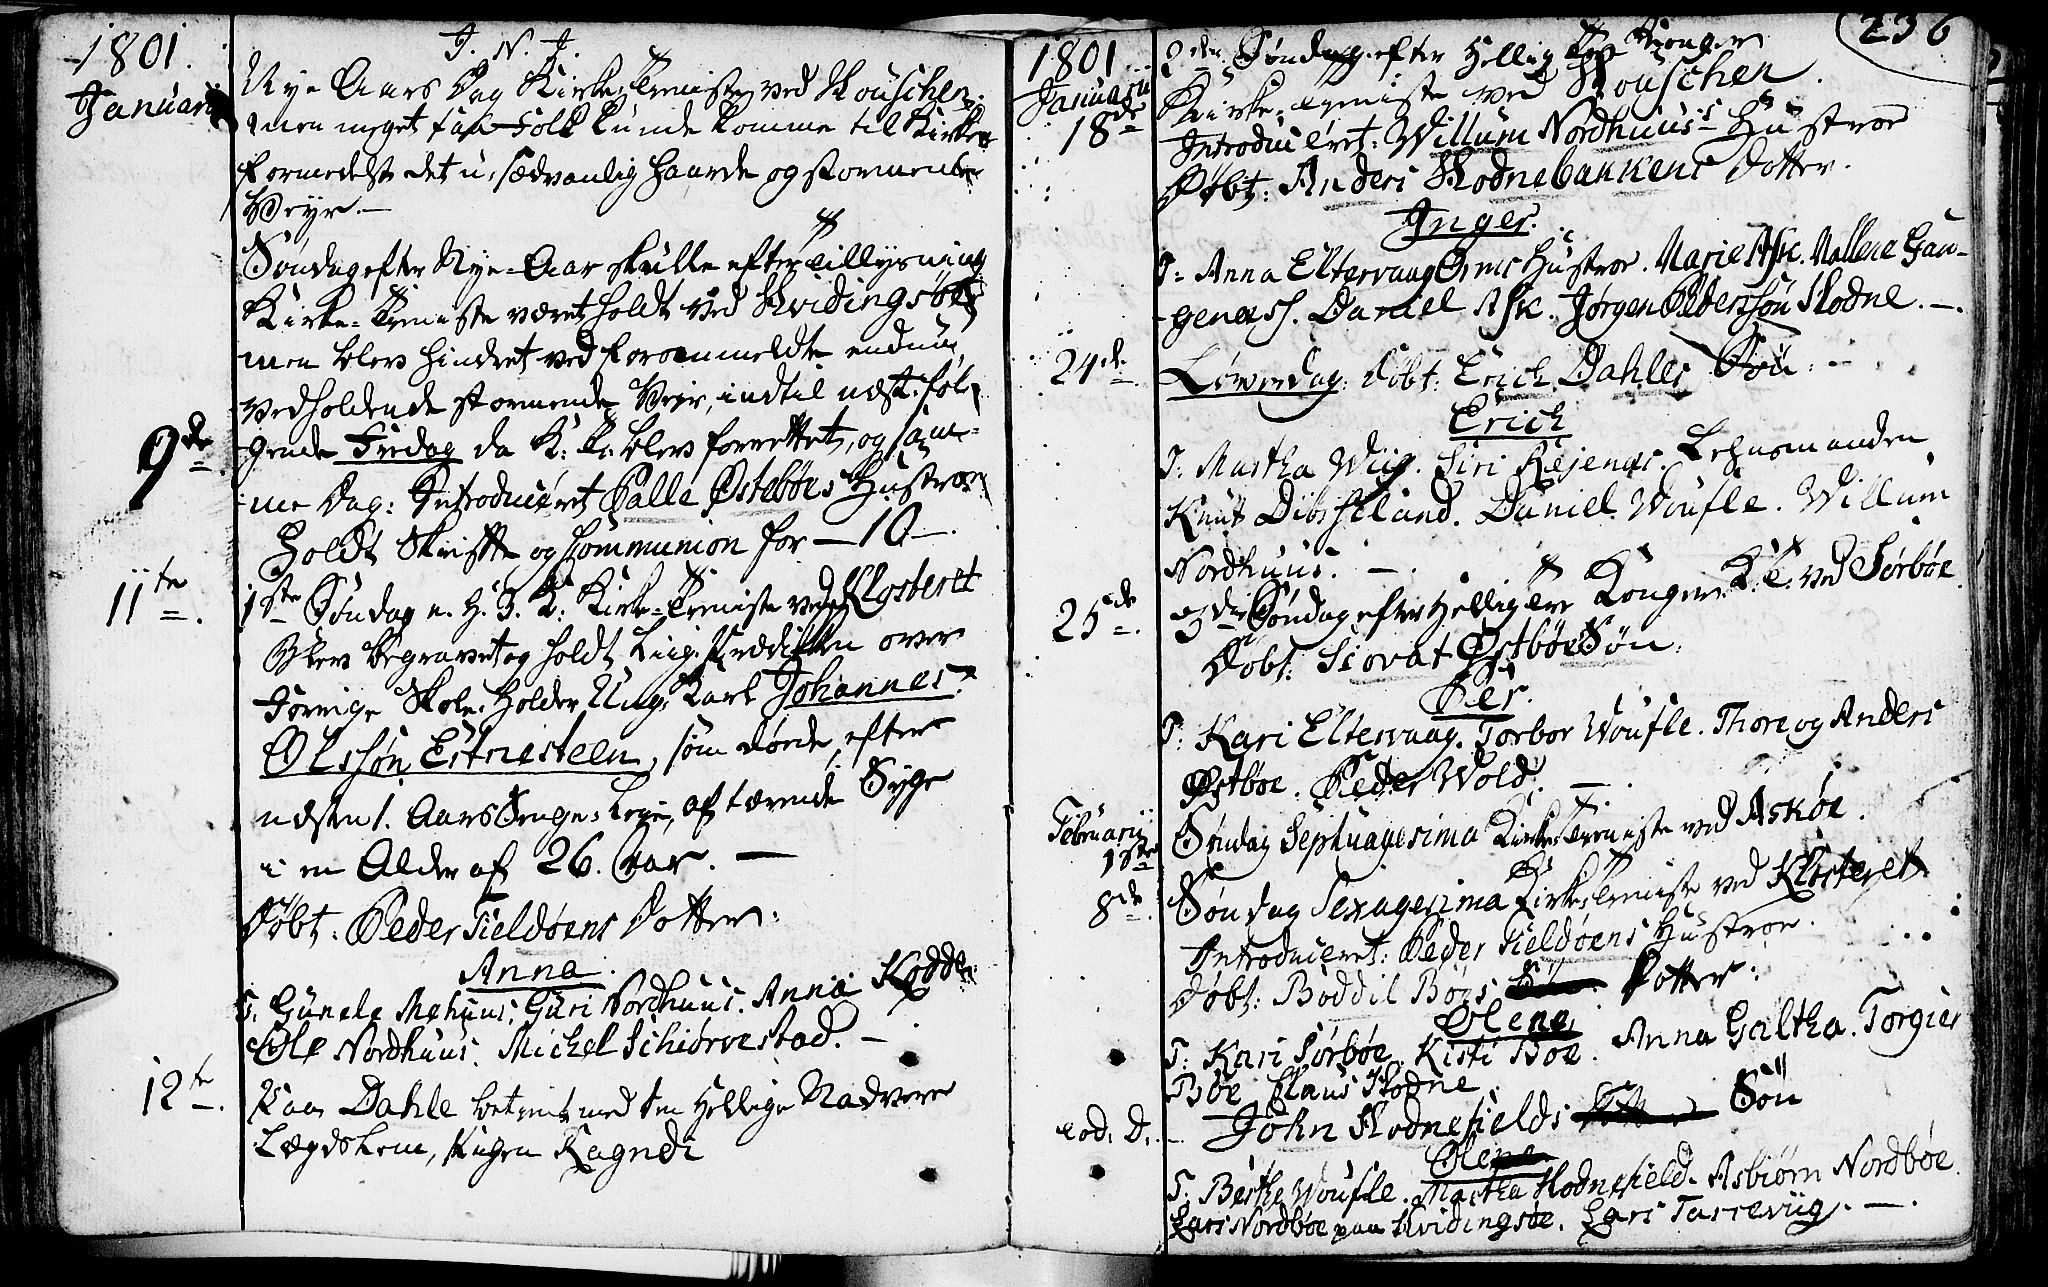 1801.
Januarii
J. N. J.
Nye Aars Dag Kirke-Tieniste ved Skouschen,
men meget faa Folk kunde komme til Kirke
formedelst det u-sædvanlig haarde og stormende
Veyr. —
Søndag efter Nye-Aar skulle efter Tillysning
Kirke-Tieniste været holdt ved Hvidingsøe
men blev hindret ved forommeldte endnu
vedholdende stormende Veyr, indtil næst-føl-
9de gende Fredag da K: T: blev forrettet, og sam-
me Dag: Introduceret Palle Østebøes Hustroe
Holdt Skrifte og Communion for — 10 —.
11te. 1ste Søndag e. H. 3. K: Kirke-Tieniste ved Klosteret
Blev begravet og holdt Liig-Prædiken over
forrige Skole-Holder Ung-Karl Johannes
Olssøn Estnesteen, som døde, efter
næsten 1. Aars Senge-Leye, af tærende Syge
i en Alder af 26. Aar. —
Døbt: Peder Fieldøens Dotter:
Anna.
T. Gunele Mehuus, Guri Nordhuus. Anna Kodde
Ole Nordhuus. Michel Schiørvestad. —
12te. Paa Dahle betient med den Hellige Nadvere
Lægdslem, Pigen Ragndi
236
1801.
Januarii
2den Søndag efter Hellig Tre Konger
18de Kirke-Tieniste ved Skouschen.
Introduceret: Willum Nordhuus's Hustroe
Døbt: Anders Hodnebankens Dotter.
Inger.
T: Anna Eltervaag Hustroe. Marie Ask. Mallene Gau-
genæss. Daniel Ask. Jørgen Pederssøn Hodne. —.
24de. Løverdag: døbt: Erich Dahles Søn: —
Erich
T: Martha Wiig. Siri Rejenæs. Lehnsmanden
Knut Dibsfeland. Daniel Woufle. Willum
Nordhuus. —.
25de. 3die Søndag efter Hellig tre Konger. K: T. ved Sørbøe.
Døbt: Siovat Østbøes Søn:
Per.
T: Kari Eltervaag. Torbor Woufle. Thore og Anders
Østbøe. Peder Wold. —
Februarii
1ste Søndag Septuagesima Kirke-Tieniste ved Askøe.
8de. Søndag Sexagesima Kirke-Tieniste ved Klosteret
Introduceret: Peder Fieldøens Hustroe.
Døbt: Boddil Bøes Dotter:
Olena.
T: Kari Sørbøe. Kisti Bøe. Anna Galtha. Torgier
Bøe Claus Hodne.
eod. D. — John Hodnefields Søn
Ole
T. Berthe Woufle. Martha Hodnefield. Asbiørn Nordbøe.
Lars Nordbøe paa Hvidingsøe. Lars Tarrevüg. —.